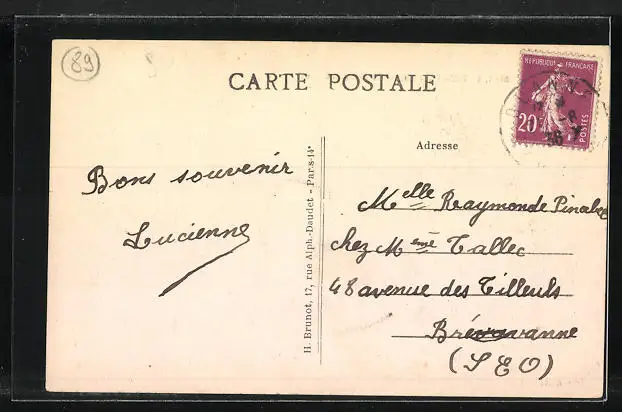 89
CARTE POSTALE
REPUBLIQUE FRANCAISE
20c
POSTES
36
Adresse
Bons souvenir
Lucienne
H. Brunot, 17, rue Alph.-Daudet - Paris-14e
Melle Raymonde
chez Meme Tallec
48 avenue des Tilleuls
(S E O)